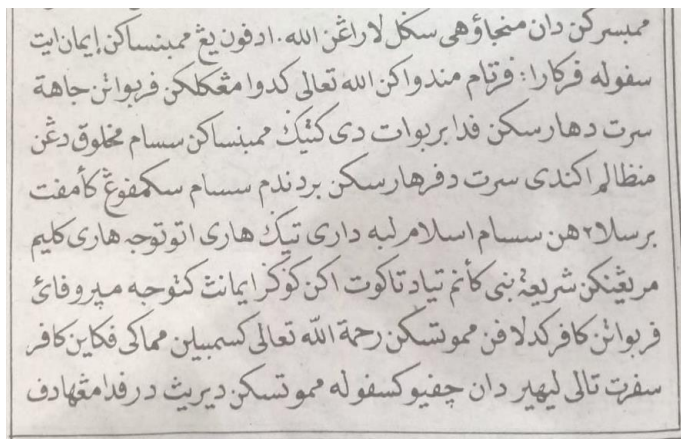 ممبسركن دان منجاؤهي سكل لاراڠن الله. ادفون يڠ ممبنساكن إيمان ايت
سفوله فركارا: فرتام مندواكن الله تعالى كدوا مڠكلكن فربواتن جاهة
سرت دهارسكن فدا بربوات دي كتيݢ ممبنساكن سسام مخلوق دڠن
منظالم اكندي سرت دفرهارسكن بردندم سسام سكمفوڠ كأمفت
برسلا٢هن سسام اسلام لبه داري تيݢ هاري اتو توجه هاري كليم
مريڠنكن شريعة نبي كأنم تياد تاكوت اكن ݢوݢر ايمانڽ كتوجه مپروفائ
فربواتن كافر كدلافن مموتسكن رحمة الله تعالى كسمبيلن مماكي فكاين كافر
سفرت تالي ليهير دان چفيو كسفوله مموتسكن ديريڽ درفدا مڠهادف